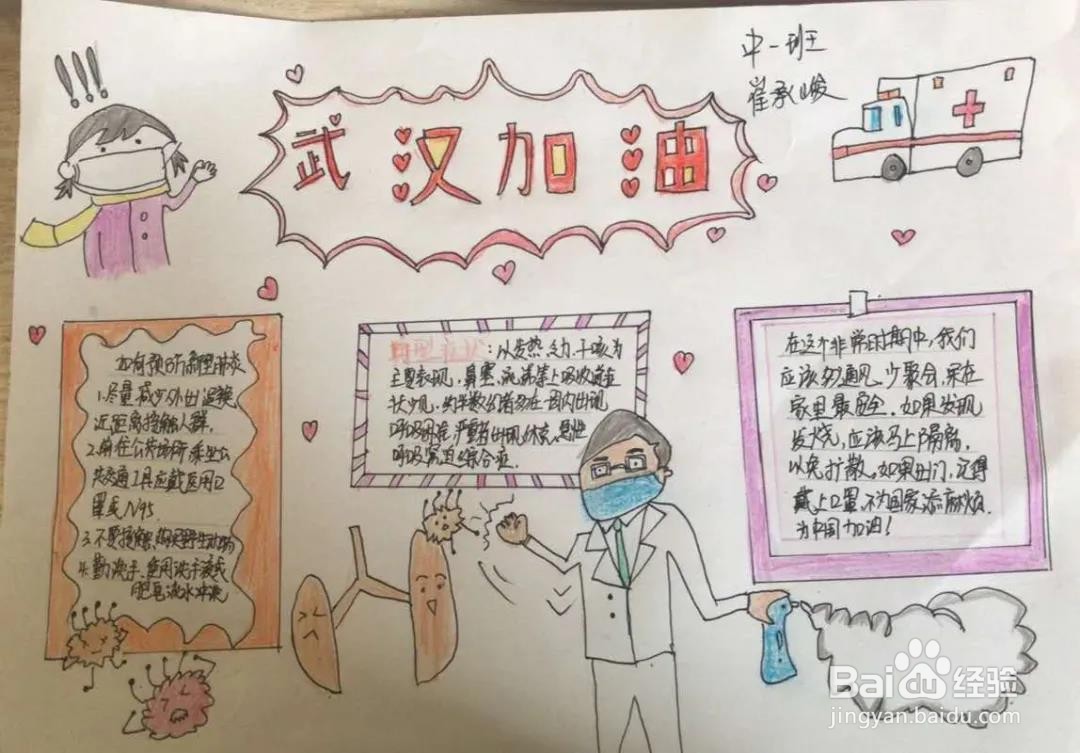 中一班
崔承峻
武汉加油
如何预防新型肺炎
1.尽量减少外出避免
近距离接触人群,
2.前往公共场所乘坐公
共交通工具应戴医用口
罩或N95
3.不要接触、购买野生动物
4.勤洗手,使用洗手液或
肥皂流水冲洗
典型症状:以发热、乏力、干咳为
主要表现,鼻塞、流涕等上呼吸道症
状少见,约半数患者多在一周内出现
呼吸困难,严重者出现休克、急性
呼吸窘迫综合症.
在这个非常时期中,我们
应该多通风、少聚会,呆在
家里最安全.如果发现
发烧,应该马上隔离,
以免扩散.如果出门,记得
戴上口罩,不为国家添麻烦.
为中国加油!
Baidu经验
jingyan.baidu.com